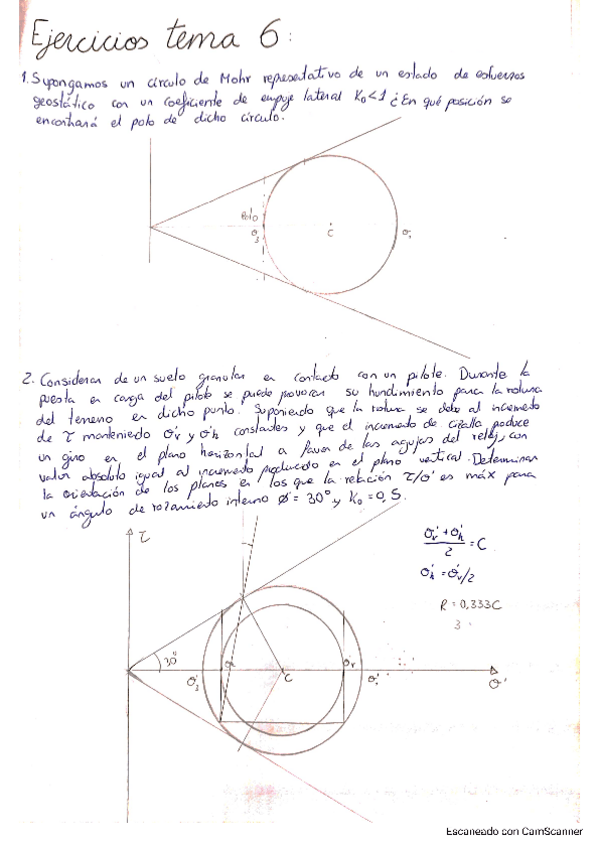 Ejercicios tema 6:
1. Supongamos un círculo de Mohr representativo de un estado de esfuerzos
geostático con un coeficiente de empuje lateral K₀<1 ¿En qué posición se
encontrará el polo de dicho círculo.
Polo
σ₃
C
σ₁
2. Consideran de un suelo granular en contacto con un pilote. Durante la
puesta en carga del pilote se puede provocar su hundimiento para la rotura
del terreno en dicho punto. Suponiendo que la rotura se debe al incremento
de τ manteniendo σ'v y σ'h constantes y que el incremento de cizalla produce
un giro en el plano horizontal a favor de las agujas del reloj, con
valor absoluto igual al incremento producido en el plano vertical. Determinar
la orientación de los planos en los que la relación τ/σ' es máx para
un ángulo de rozamiento interno ø'=30° y K₀=0,5.
τ
σ'v + σ'h
2
= C
σ'h = σ'v/2
R = 0,333C
3
30°
σ'₃
C
σ'v
σ'₁
σ'
Escaneado con CamScanner